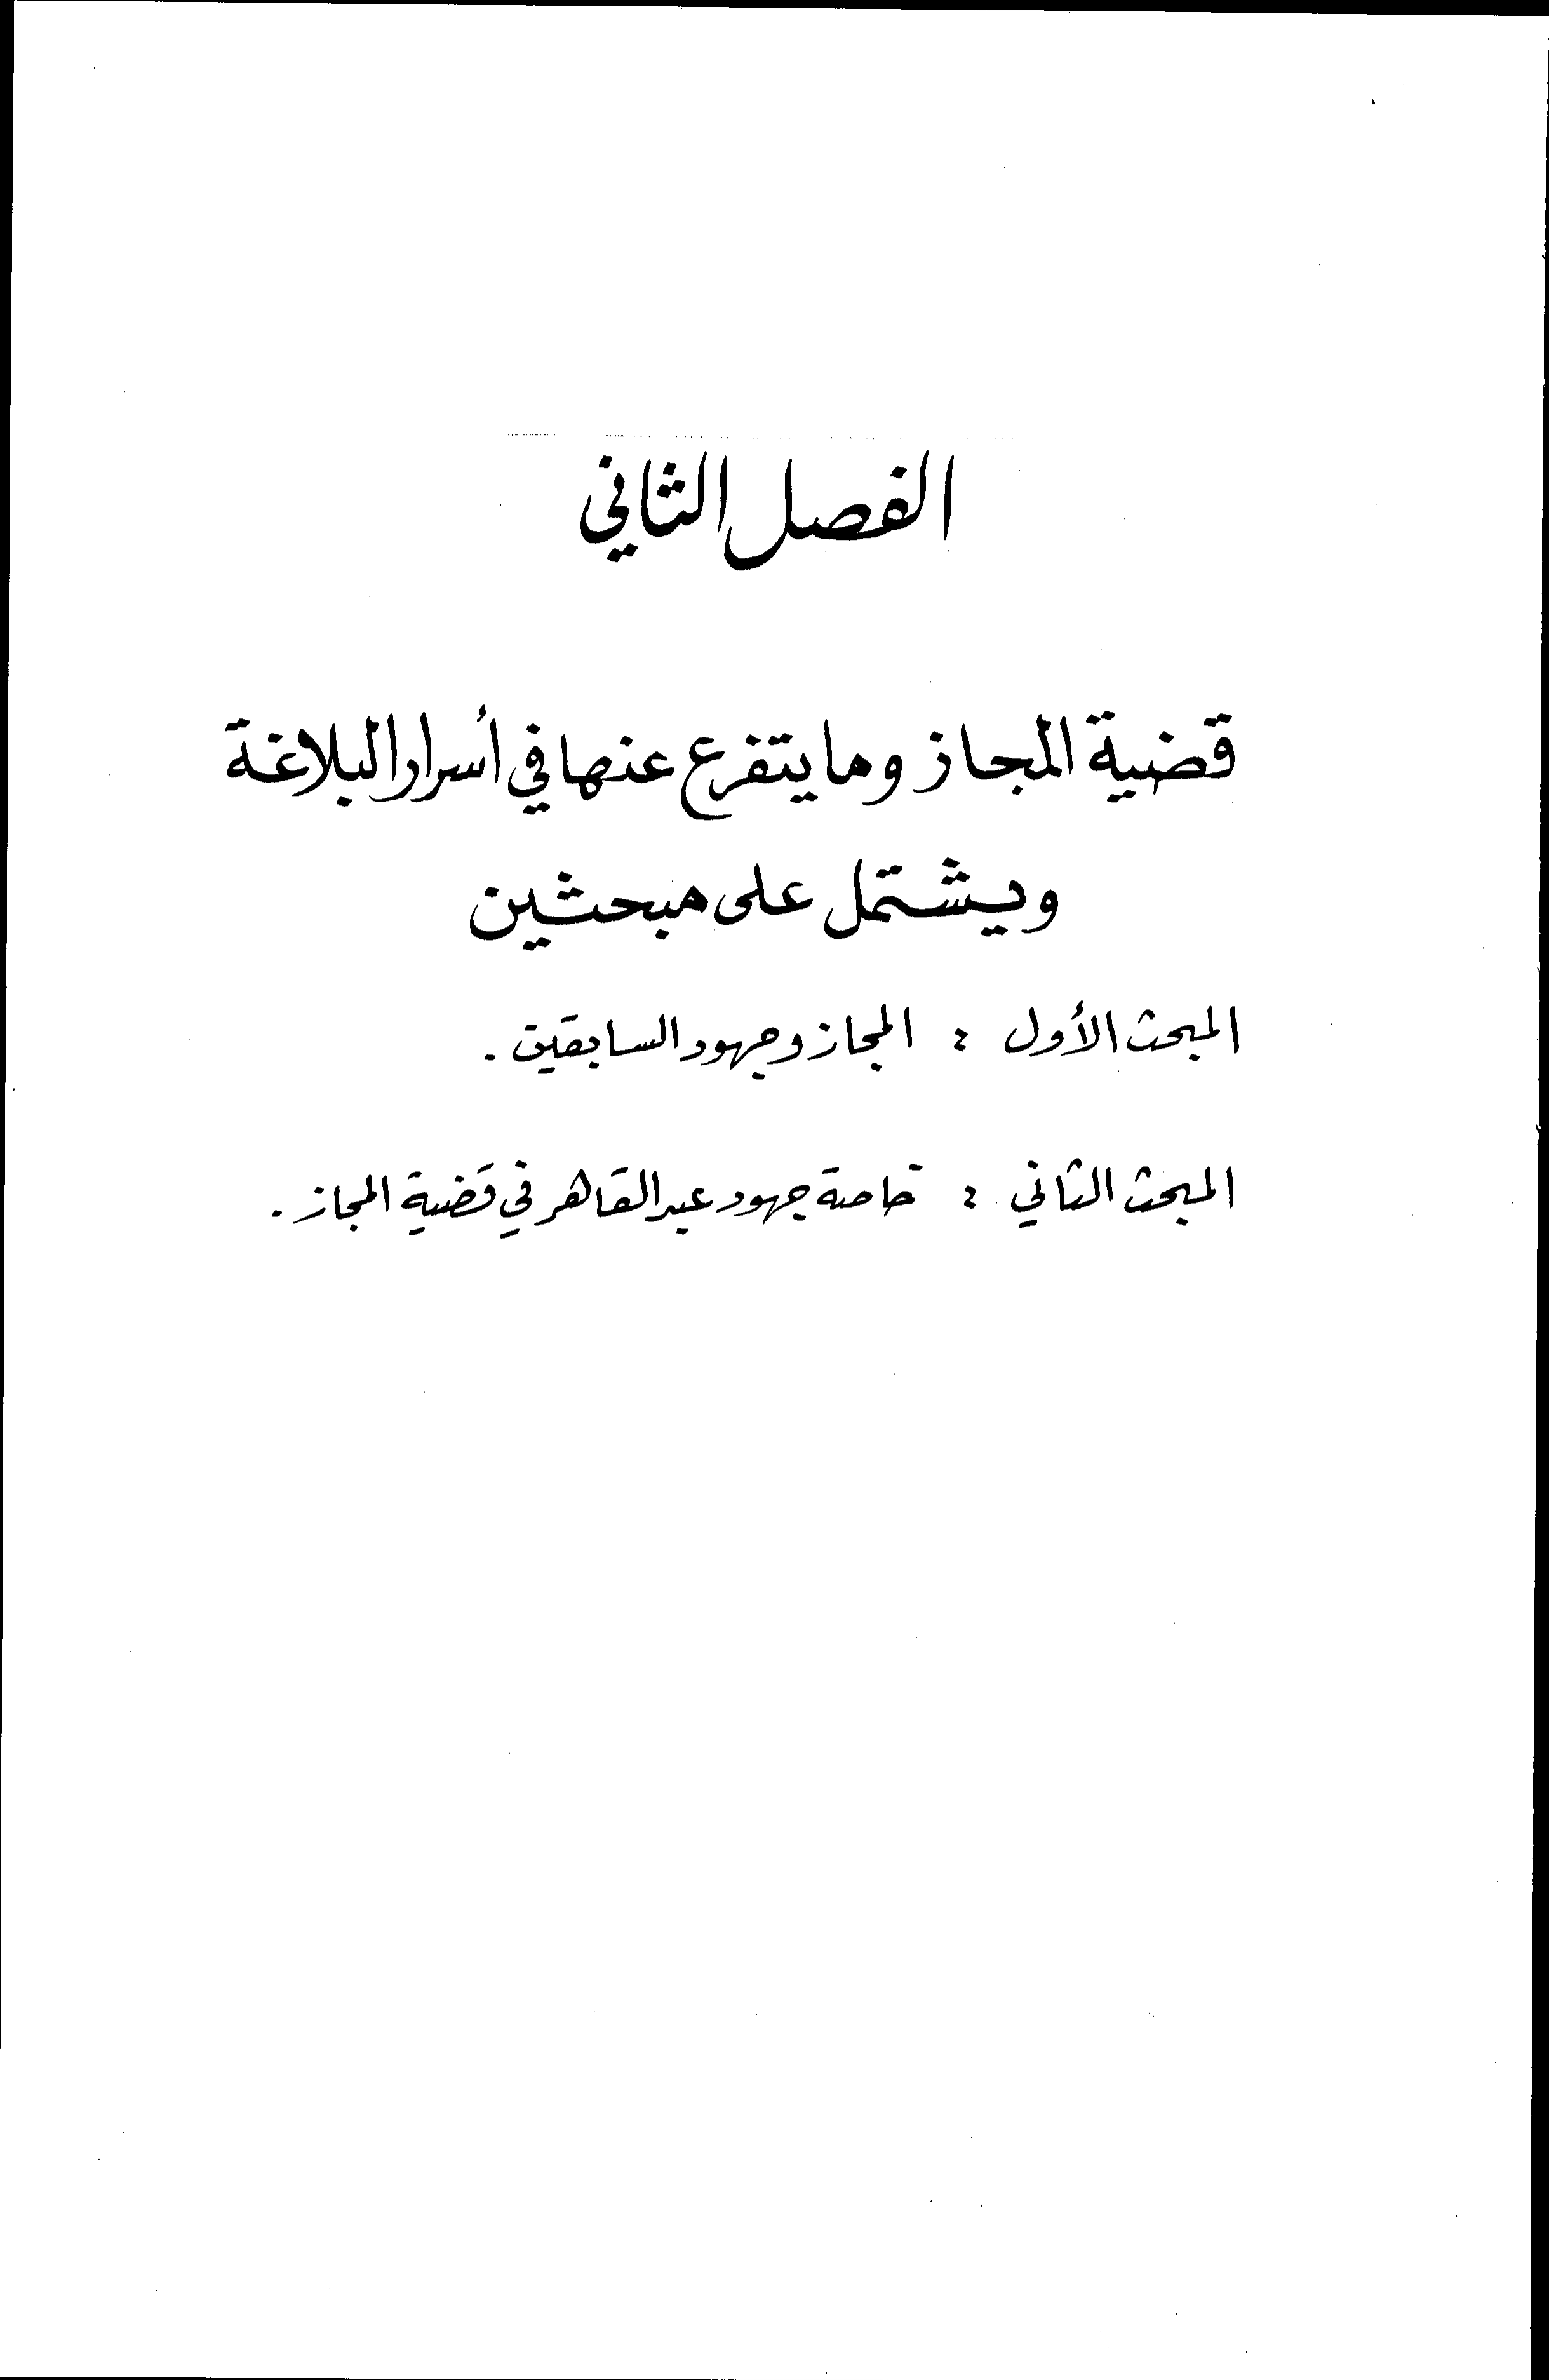 الفصل الثاني
قضية المجاز وما يتفرع عنها في أسرار البلاغة
ويشتمل على مبحثين
المبحث الأول : المجاز وجهود السابقين .
المبحث الثاني : خاصة جهود عبد القاهر في قضية المجاز .